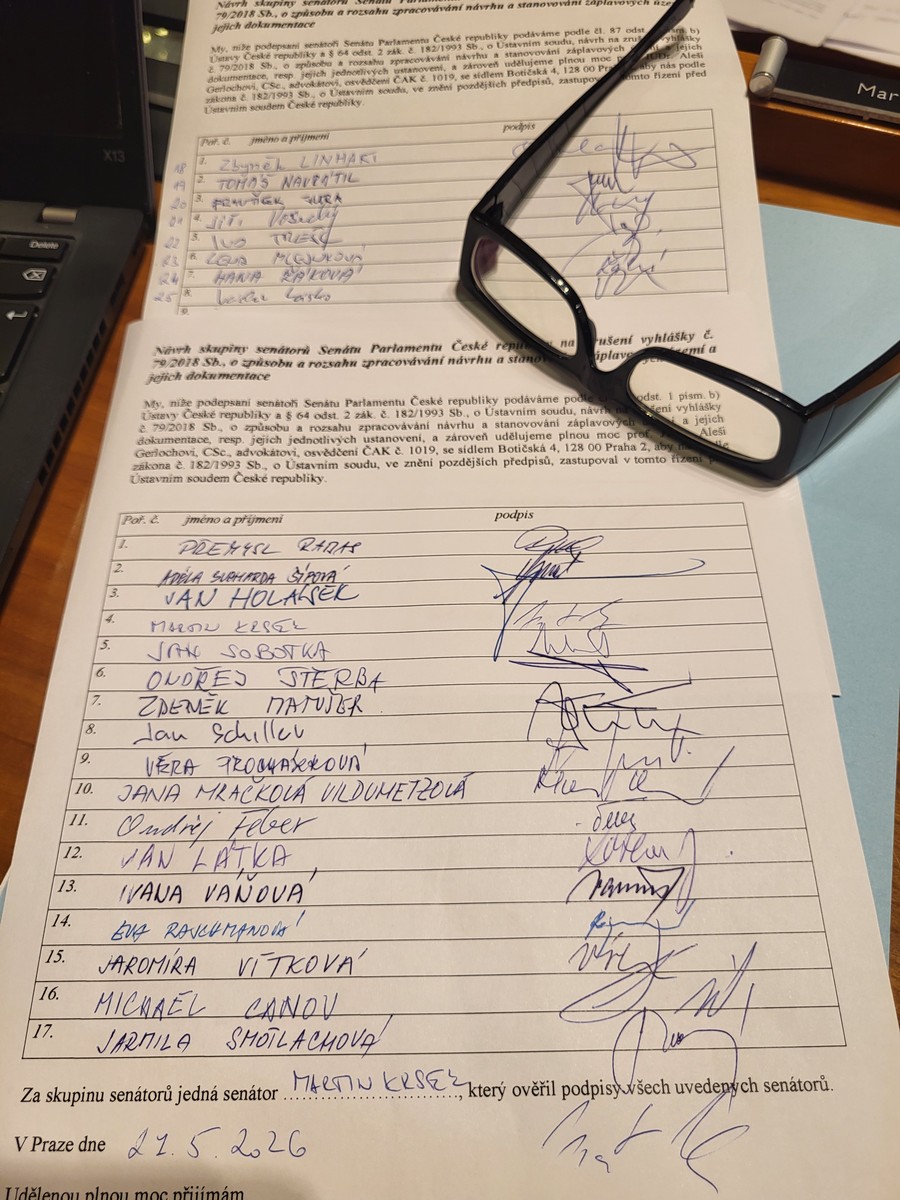 Návrh skupiny senátorů Senátu Parlamentu České
79/2018 Sb., o způsobu a rozsahu zpracovávání návrhu a stanovování záplavových
jejich dokumentace
My, níže podepsaní senátoři Senátu Parlamentu České republiky podáváme podle čl. 87 odst. b)
Ústavy České republiky a § 64 odst. 2 zák. č. 182/1993 Sb., o Ústavním soudu, návrh na zrušení vyhlášky
č. 79/2018 Sb., o způsobu a rozsahu zpracovávání návrhu a stanovování záplavových a jejich
dokumentace, resp. jejich jednotlivých ustanovení, a zároveň udělujeme plnou moc Aleši
Gerlochovi, CSc., advokátovi, osvědčení ČAK č. 1019, se sídlem Botičská 4, 128 00 Praha aby nás podle
zákona č. 182/1993 Sb., o Ústavním soudu, ve znění pozdějších předpisů, zastupoval tomto řízení před
Ústavním soudem České republiky.
Poř. č. jméno a příjmení podpis
18 1. Zbyněk LINHART
19 2. TOMÁŠ NAVRÁTIL
20 3. FRANTIŠEK
21 4. Jiří
22 5. IVO TREŠL
23 6.
24 7. HANA ŽÁKOVÁ
25 8. Lásko
9.
X13
Delete
Mar
Návrh skupiny senátorů Senátu Parlamentu České na zrušení vyhlášky č.
79/2018 Sb., o způsobu a rozsahu zpracovávání návrhu a a
jejich dokumentace
My, níže podepsaní senátoři Senátu Parlamentu České republiky podáváme podle odst. 1 písm. b)
Ústavy České republiky a § 64 odst. 2 zák. č. 182/1993 Sb., o Ústavním soudu, návrh vyhlášky
č. 79/2018 Sb., o způsobu a rozsahu zpracovávání návrhu a stanovování záplavových a jejich
dokumentace, resp. jejich jednotlivých ustanovení, a zároveň udělujeme plnou moc prof. Aleši
Gerlochovi, CSc., advokátovi, osvědčení ČAK č. 1019, se sídlem Botičská 4, 128 00 Praha 2, aby
zákona č. 182/1993 Sb., o Ústavním soudu, ve znění pozdějších předpisů, zastupoval v tomto řízení
Ústavním soudem České republiky.
Poř. č. jméno a příjmení podpis
1. PŘEMYSL RABAS
2. ADÉLA ŠÍPOVÁ
3. JAN HOLÁSEK
4. MARTIN KRSEK
5. JAN SOBOTKA
6. ONDŘEJ ŠTĚRBA
7. ZDENĚK MATUŠEK
8. Jan Schiller
9. VĚRA PROCHÁZKOVÁ
10. JANA MRAČKOVÁ VILDUMETZOVÁ
11. Ondřej Feber
12. JAN LÁTKA
13. IVANA VÁŇOVÁ
14. EVA RAJCHMANOVÁ
15. JAROMÍRA VÍTKOVÁ
16. MICHAEL CANOV
17. JARMILA SMOTLACHOVÁ
Za skupinu senátorů jedná senátor MARTIN KRSEK, který ověřil podpisy všech uvedených senátorů.
V Praze dne 21.5.2026
Udělenou plnou moc přijímám